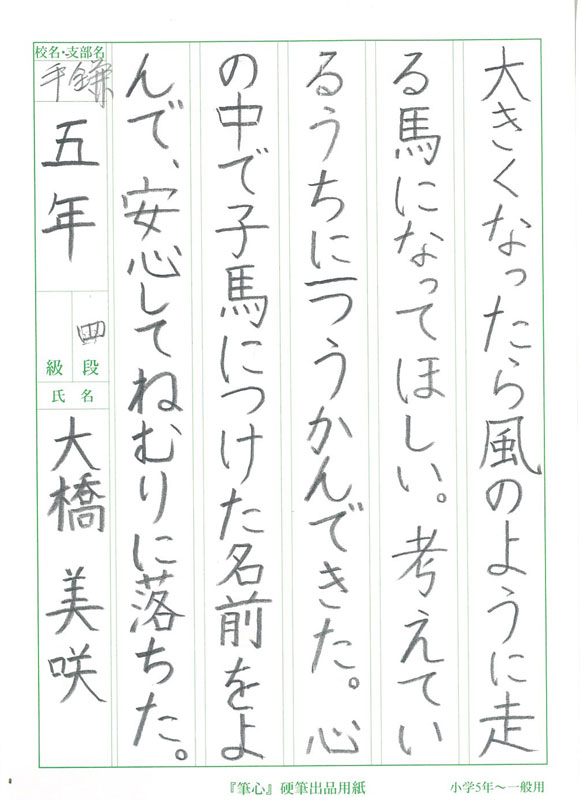 大きくなったら風のように走
る馬になってほしい。考えてい
るうちに一つうかんできた。心
の中で子馬につけた名前をよ
んで、安心してねむりに落ちた。
校名・支部名
手鎌
五年
四
級 段
氏 名
大橋 美咲
『筆心』硬筆出品用紙
小学5年〜一般用